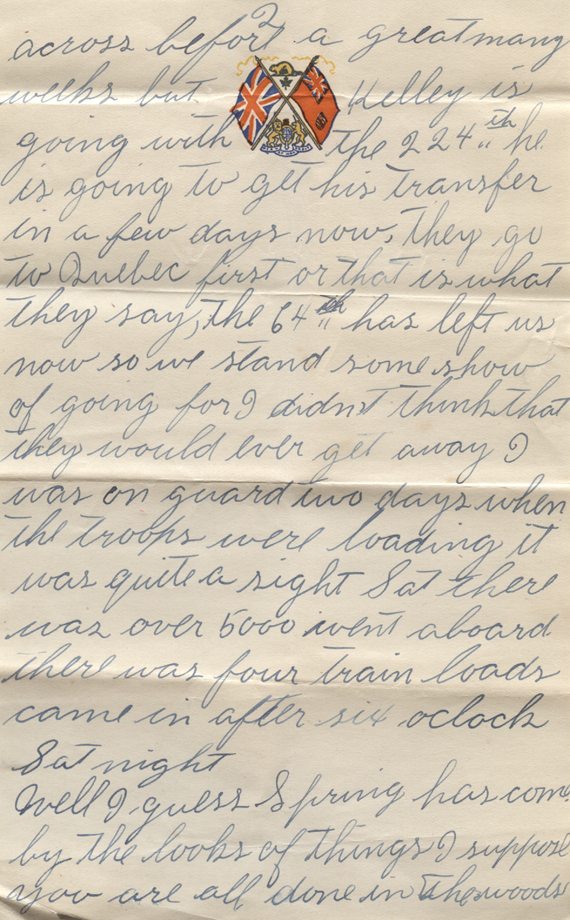 2
across before a great many
weeks but Kelley is
going with the 224th he
is going to get his transfer
in a few days now, they go
to Quebec first or that is what
they say, the 64th has left us
now so we stand some show
of going for I didnt think that
they would ever get away I
was on guard two days when
the troops were loading it
was quite a sight Sat there
was over 5000 went aboard
there was four train loads
came in after six oclock
Sat night
Well I guess Spring has come
by the looks of things I suppose
you are all done in the woods